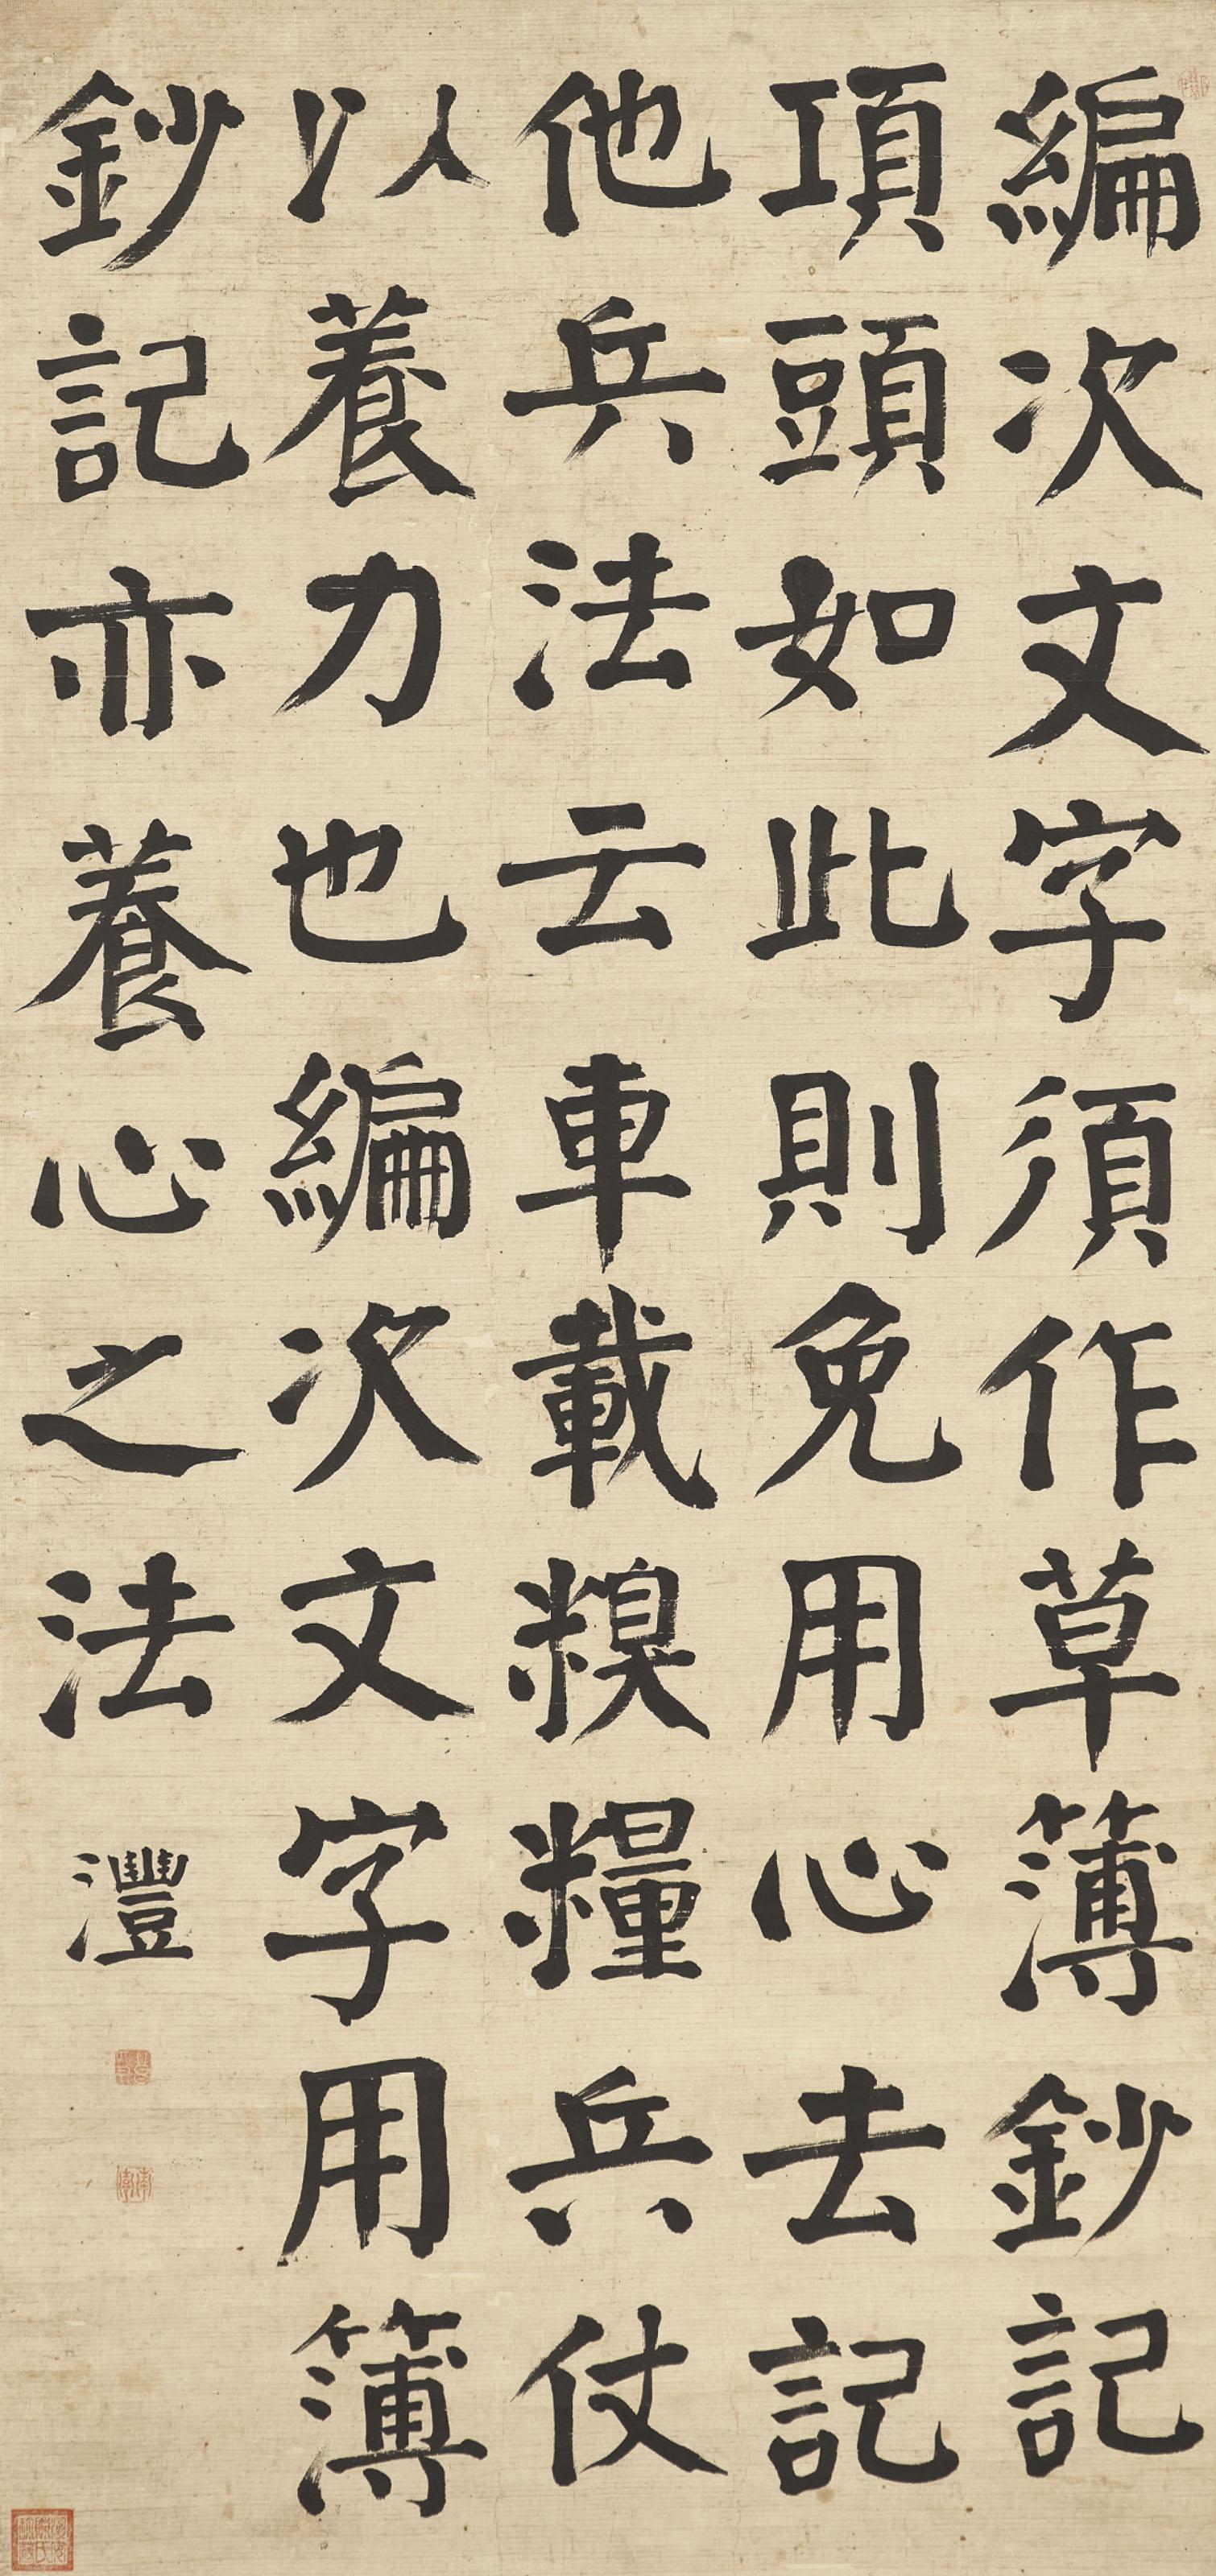 編次文字須作草簿鈔記
項頭如此則免用心去記
他兵法云車載糗糧兵仗
以養力也編次文字用簿
鈔記亦養心之法
灃